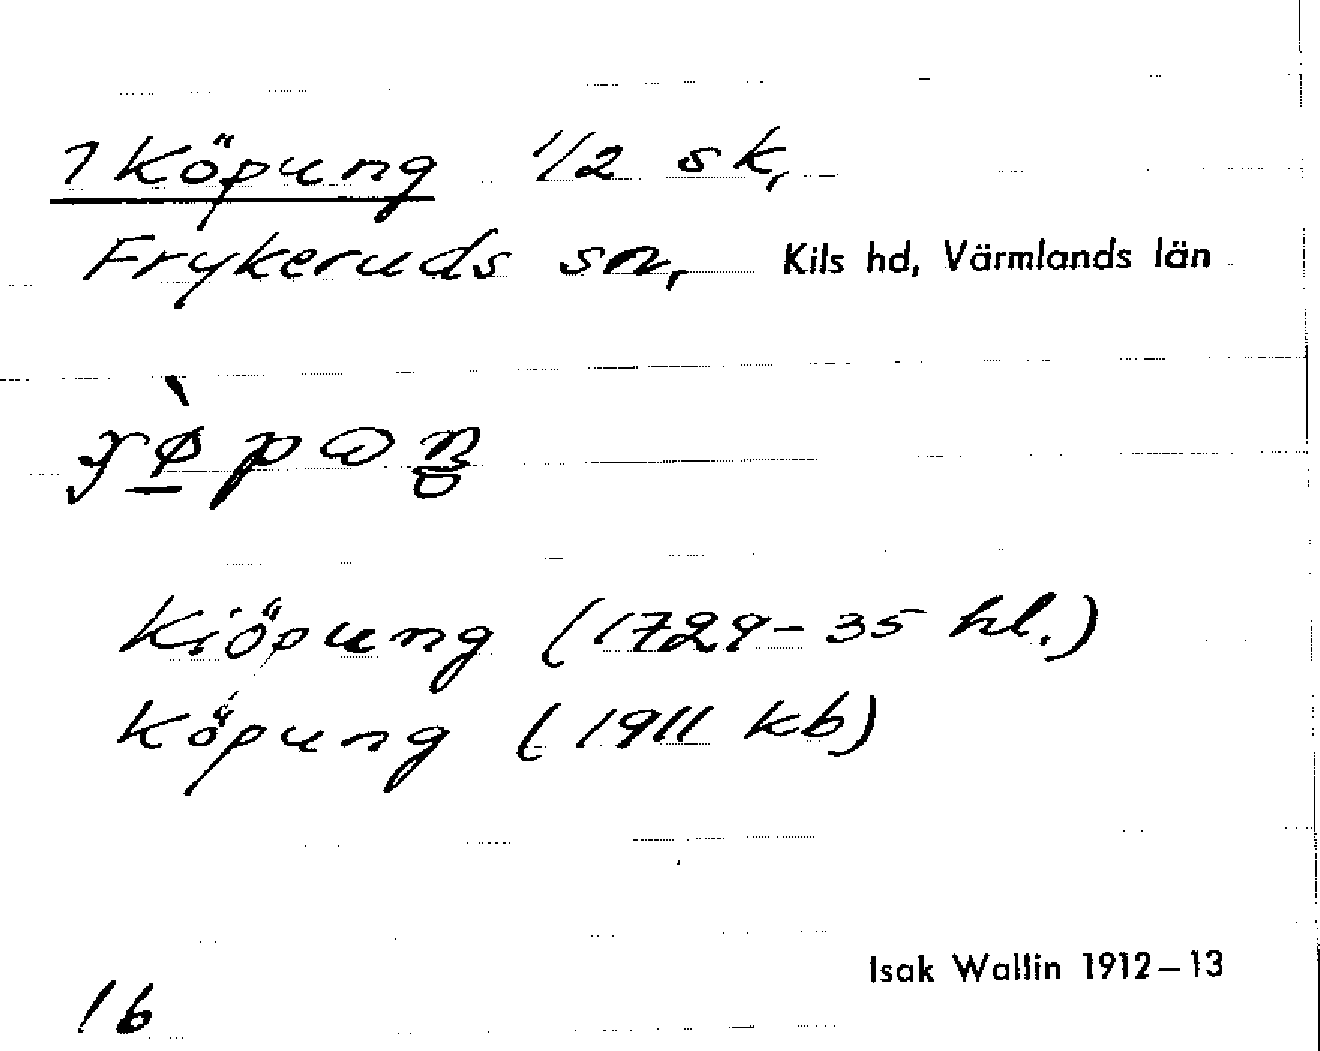 1 Köpung 1/2 sk,
Frykeruds sn, Kils hd, Värmlands län
Kiöpung (1729-35 hl.)
Köpung (1911 kb)
Isak Wallin 1912–13
16